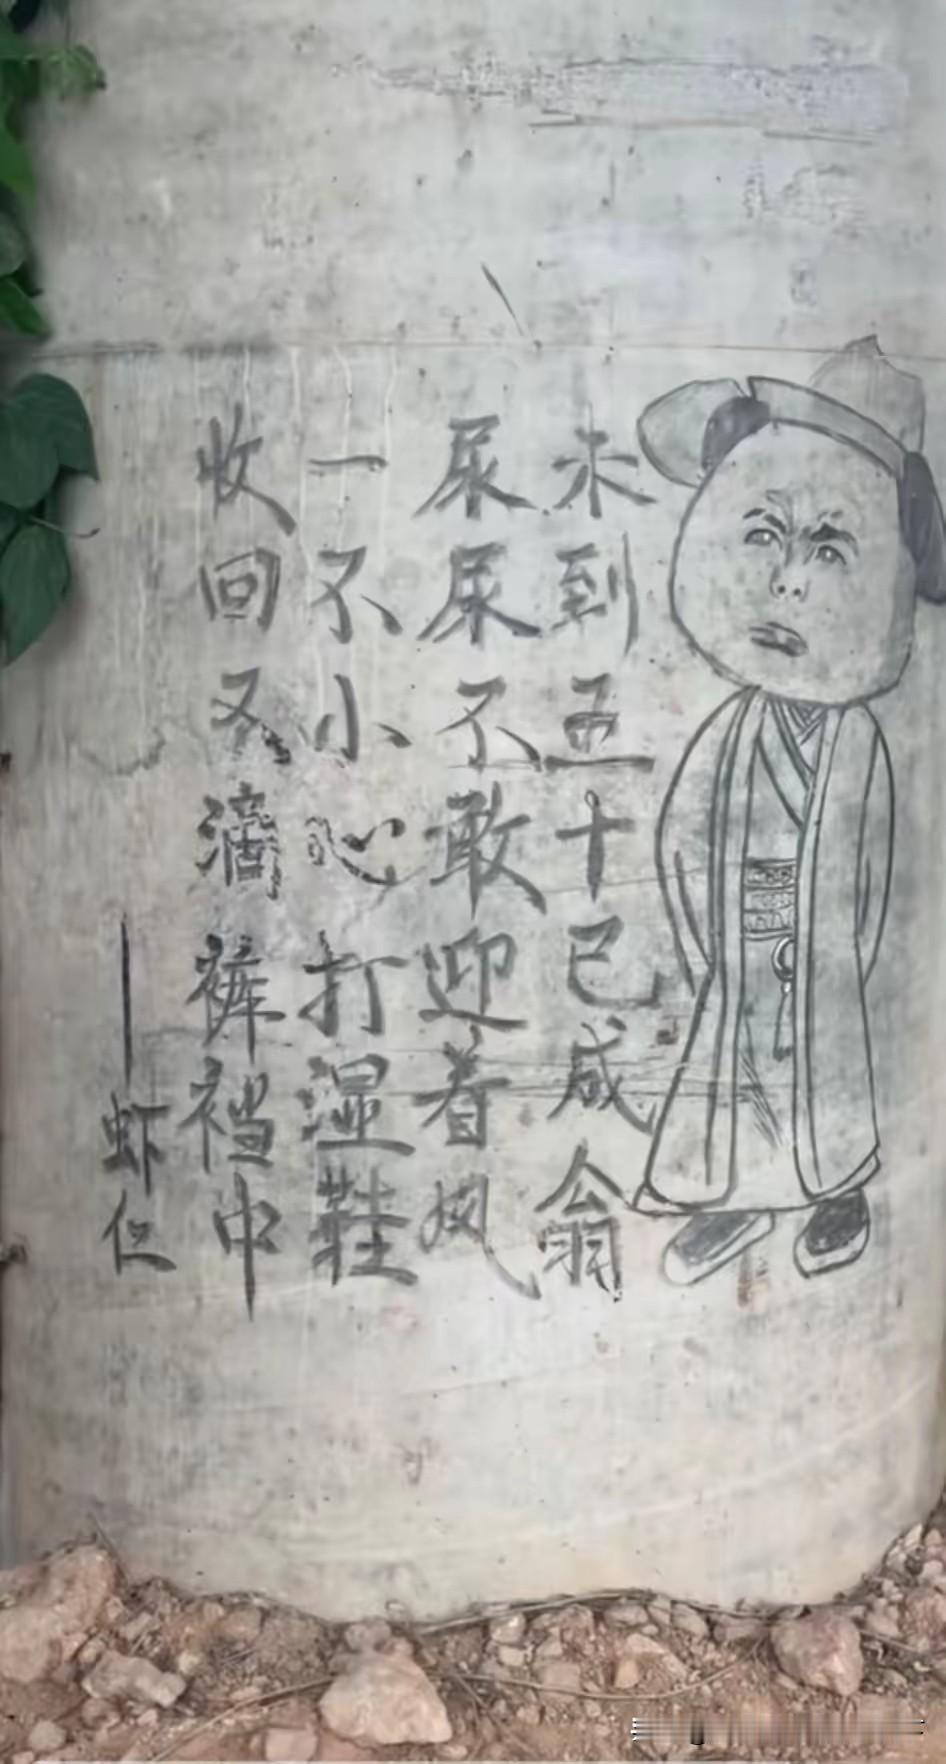 未到五十已成翁
尿尿不敢迎着风
一不小心打湿鞋
收回又滴裤裆中
——虾仁